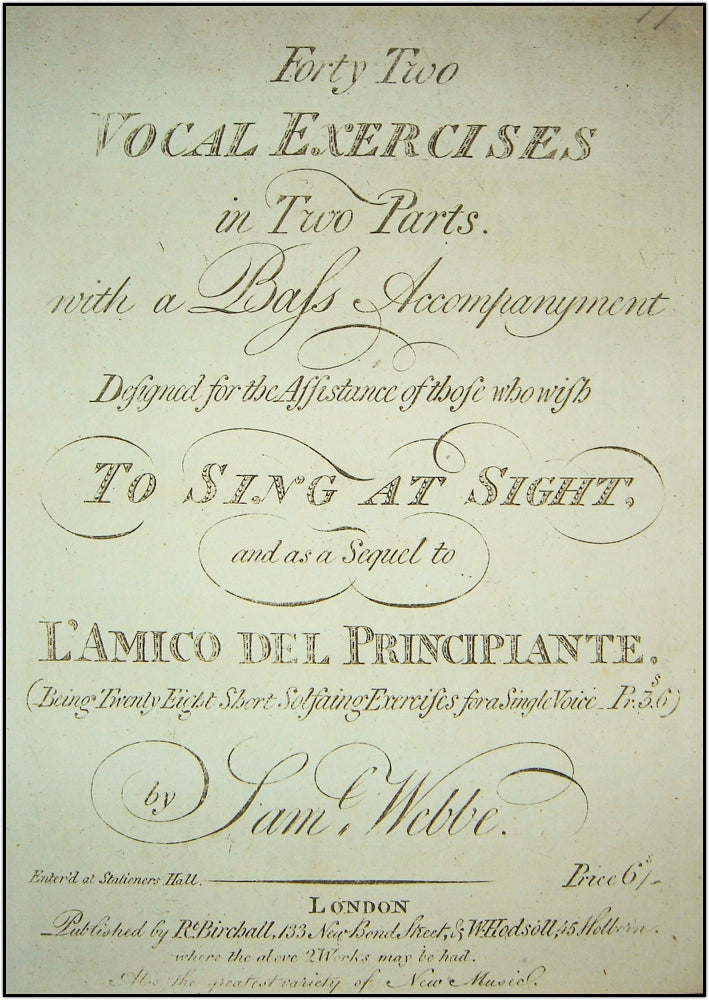 Forty Two
VOCAL EXERCISES
in Two Parts.
with a Baſs Accompanyment
Deſigned for the Aſſistance of thoſe who wiſh
TO SING AT SIGHT,
and as a Sequel to
L'AMICO DEL PRINCIPIANTE.
(Being Twenty Eight Short Solfaing Exerciſes for a Single Voice_Pr. 3.s6)
by Sam.l Webbe.
Enter'd at Stationers Hall.
Price 6s/-
LONDON
Published by Rt. Birchall, 133 New Bond Street, & W. Hodsoll, 45 Holborn.
where the above 2 Works may be had.
Also the greatest variety of New Music.